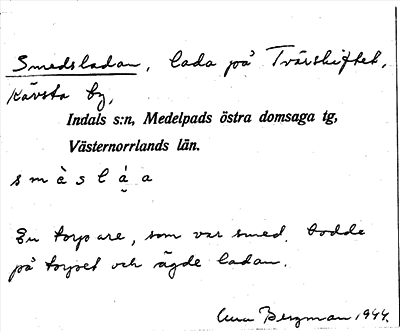 Smedsladan, lada på Tvärskiftet,
Kävsta by,
Indals s:n, Medelpads östra domsaga tg,
Västernorrlands län.
s m è s l á̮ a
En torpare, som var smed, bodde
på torpet och ägde ladan.
Bergman 1944.